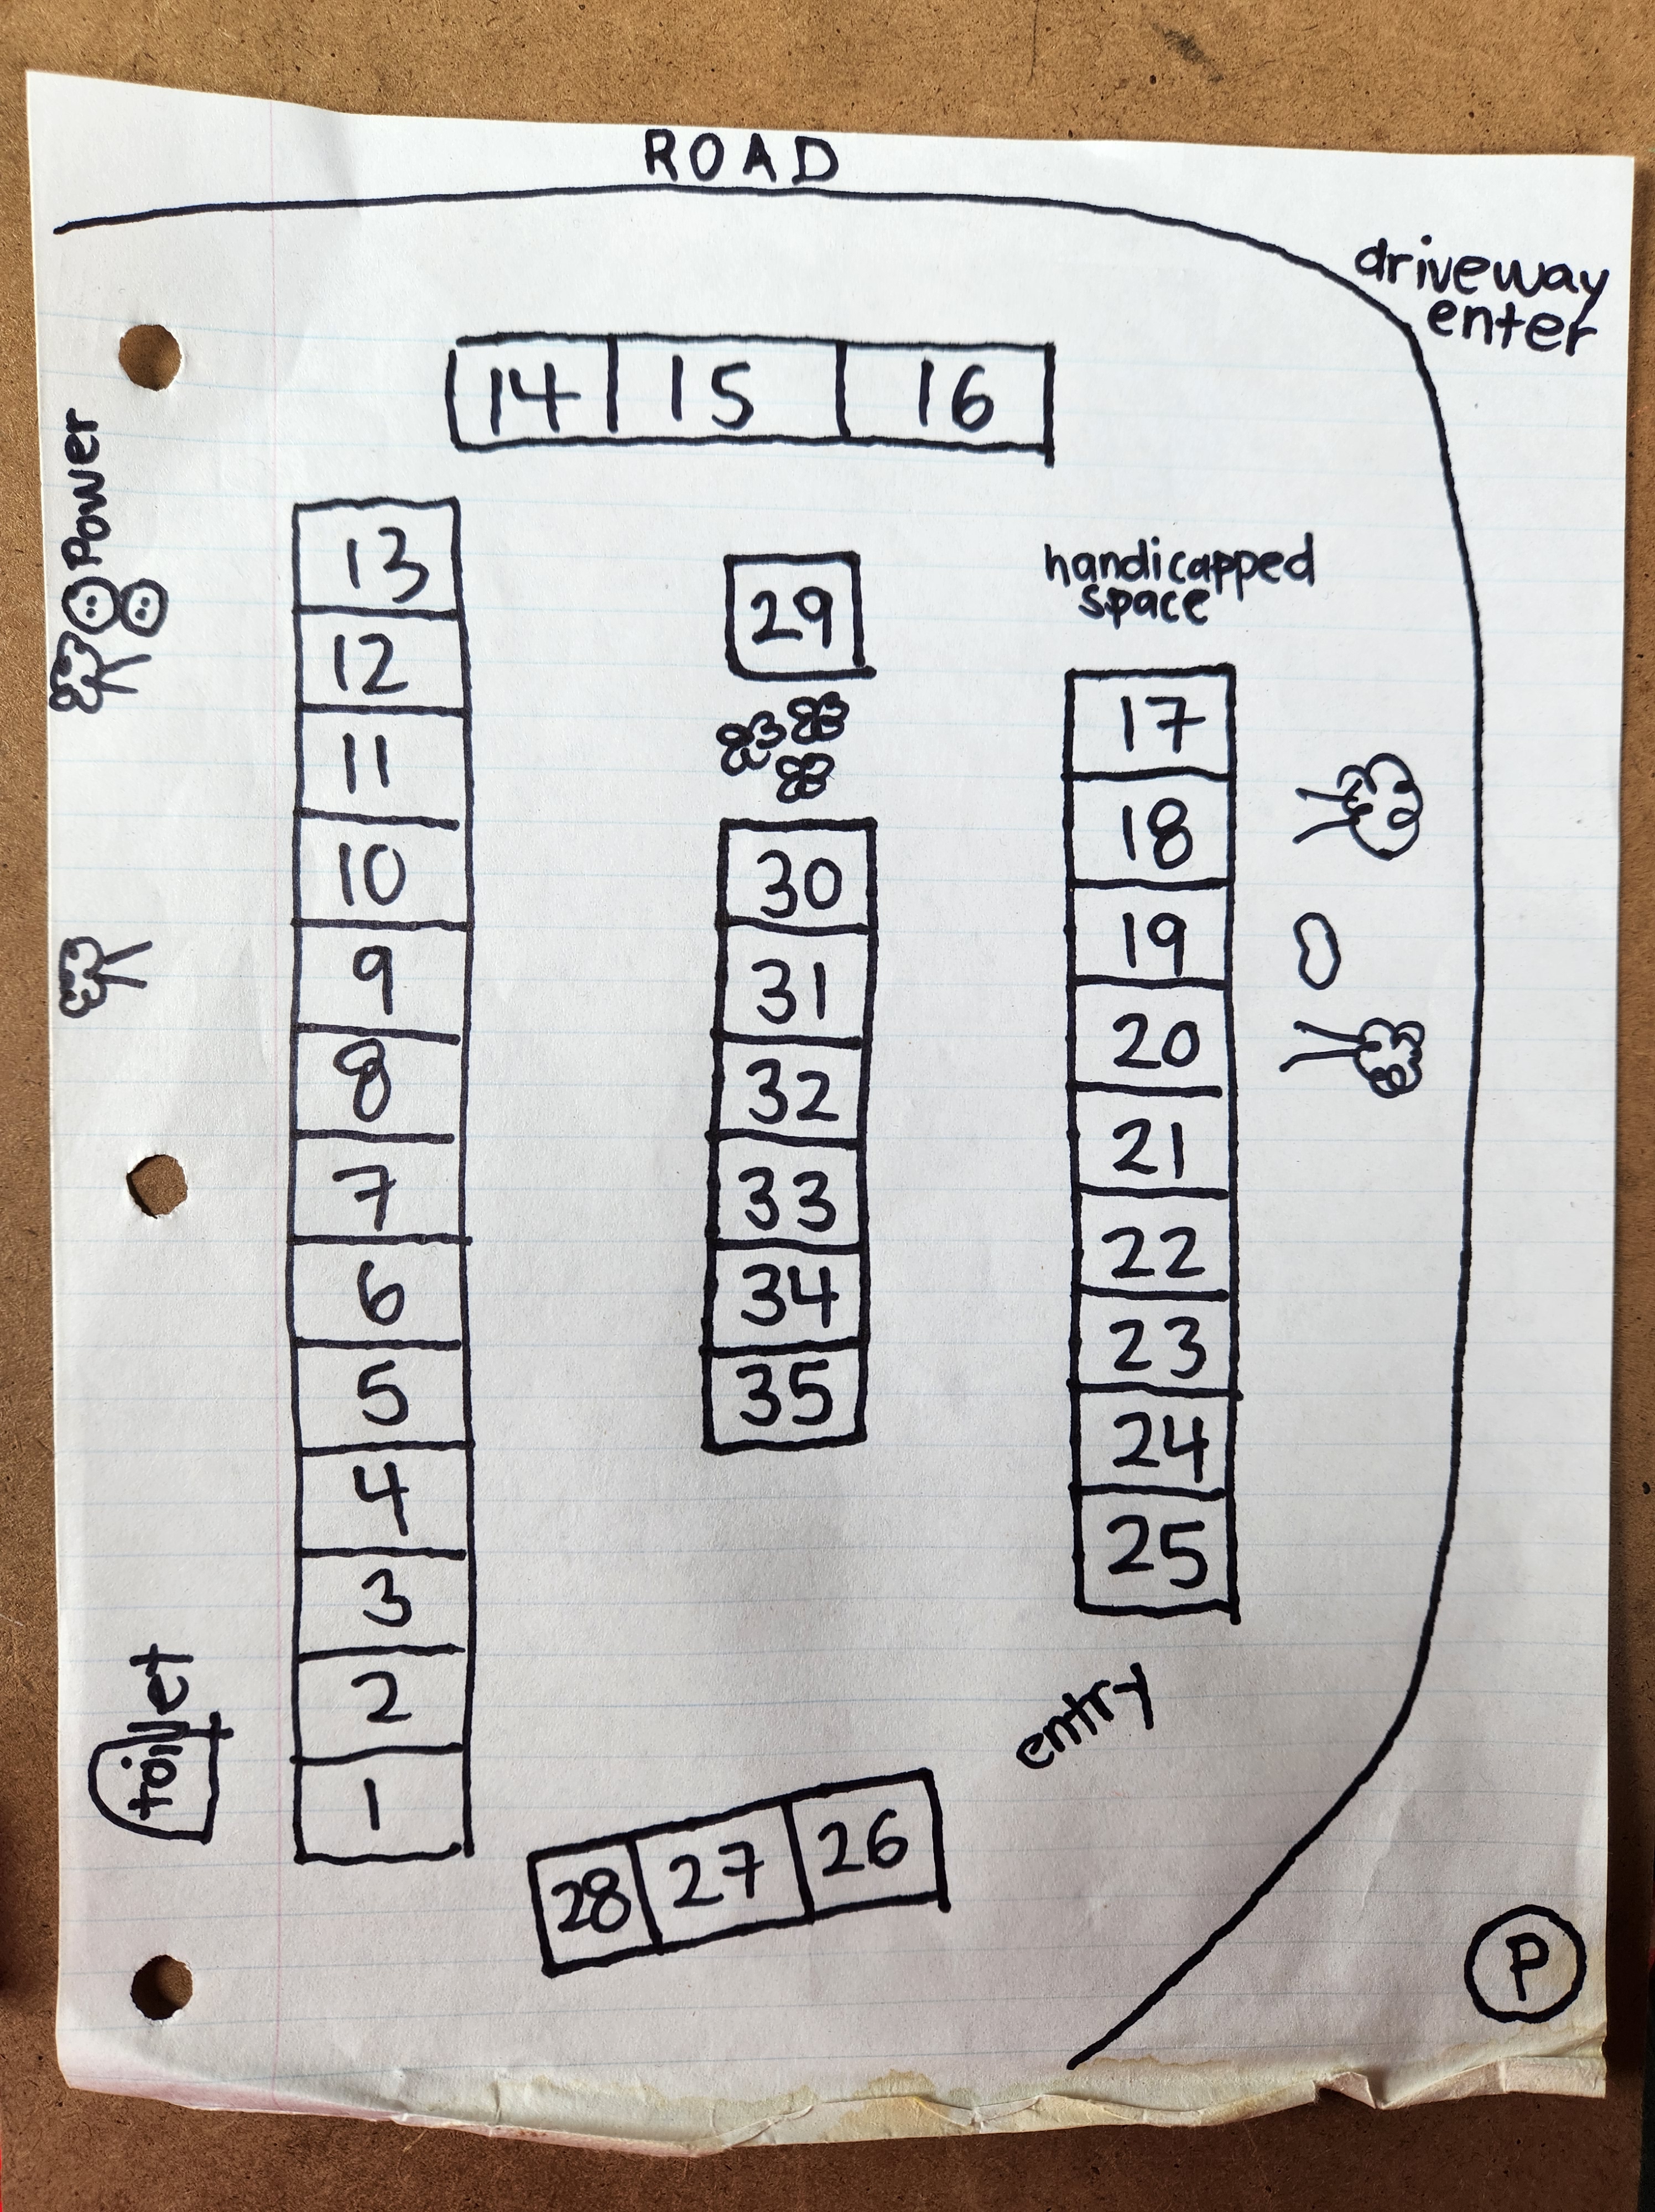 ROAD
driveway
enter
14 15 16
Power
13
12
11
10
9
8
7
6
5
4
3
2
1
toillet
29
30
31
32
33
34
35
handicapped
space
17
18
19
20
21
22
23
24
25
entry
28 27 26
P